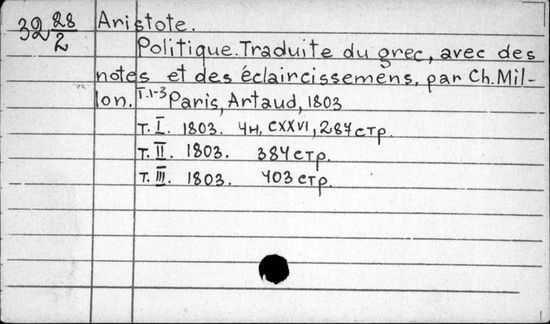 32 28/2 Aristote.
Politique. Traduite du grec, avec des
notes et des éclaircissemens, par Ch. Mil-
lon. T.1-3 Paris, Artaud, 1803
т. I. 1803. 4н, CXXVI, 287 стр.
т. II. 1803. 384 стр.
т. III. 1803. 403 стр.